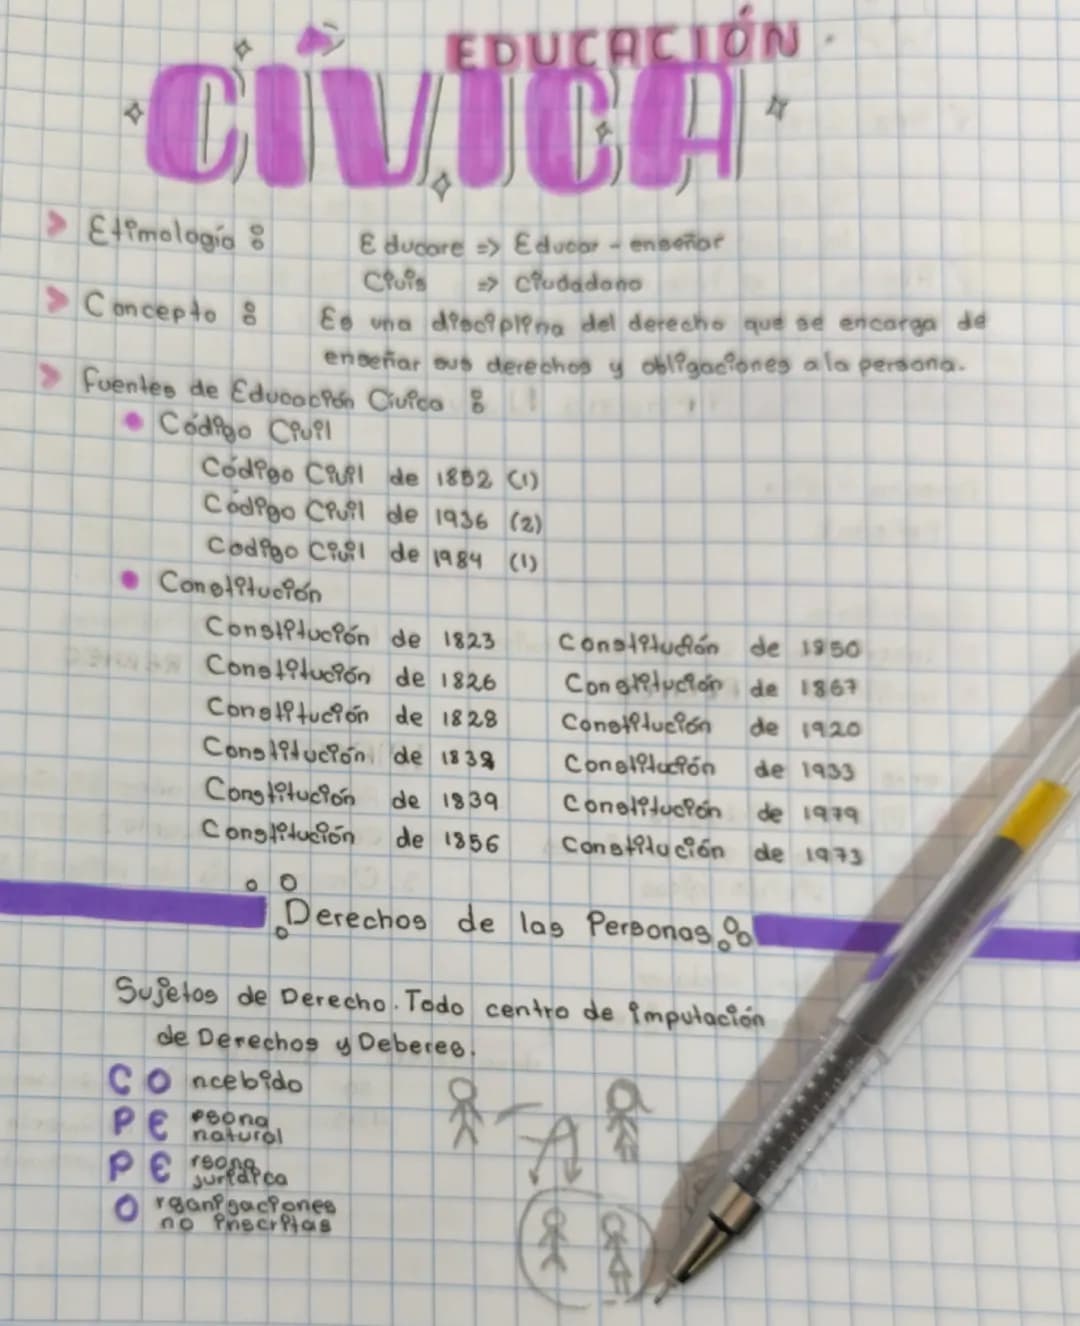 EDUCACIÓN
CÍVICA
Etimología:
Educare => Educar - enseñar
Civis => Ciudadano
Concepto: Es una disciplina del derecho que se encarga de
enseñar sus derechos y obligaciones a la persona.
Fuentes de Educación Cívica:
Código Civil
Código Civil de 1852 (1)
Código Civil de 1936 (2)
Codigo Civil de 1984 (1)
Constitución
Constitución de 1823 Constitución de 1850
Constitución de 1826 Constitución de 1867
Constitución de 1828 Constitución de 1920
Constitución de 1838 Constitución de 1933
Constitución de 1839 Constitución de 1979
Constitución de 1856 Constitución de 1973
Derechos de las Personas:
Sujetos de Derecho. Todo centro de imputación
de Derechos y Deberes.
COncebido
PErsona
natural
PErsona
jurídica
Organizaciones
no inscritas